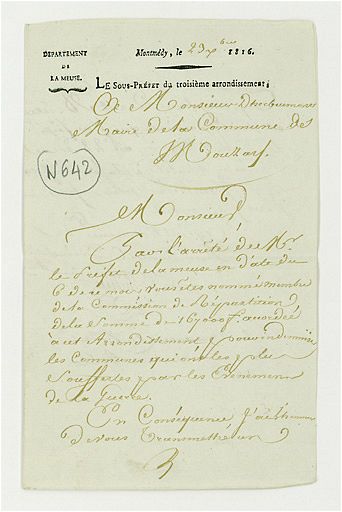 DÉPARTEMENT
DE
LA MEUSE.
Montmédy, le 23 xbre 1816.
LE SOUS-PRÉFET du troisième arrondissement;
A Monsieur
Maire de la Commune de
Mouzay.
N 642
Monsieur,
Par l'arrêté de Mr.
le Préfet de la meuse en date du
6 de ce mois, vous êtes nommé membre
de la Commission de Répartition
de la Somme de 167000 f. accordée
a cet Arrondissement, pour indemniser
les Communes qui ont les plus
Souffertes par les Evénemens
de la Guerre.
En Conséquence, J'ai l'honneur
de vous transmettre un